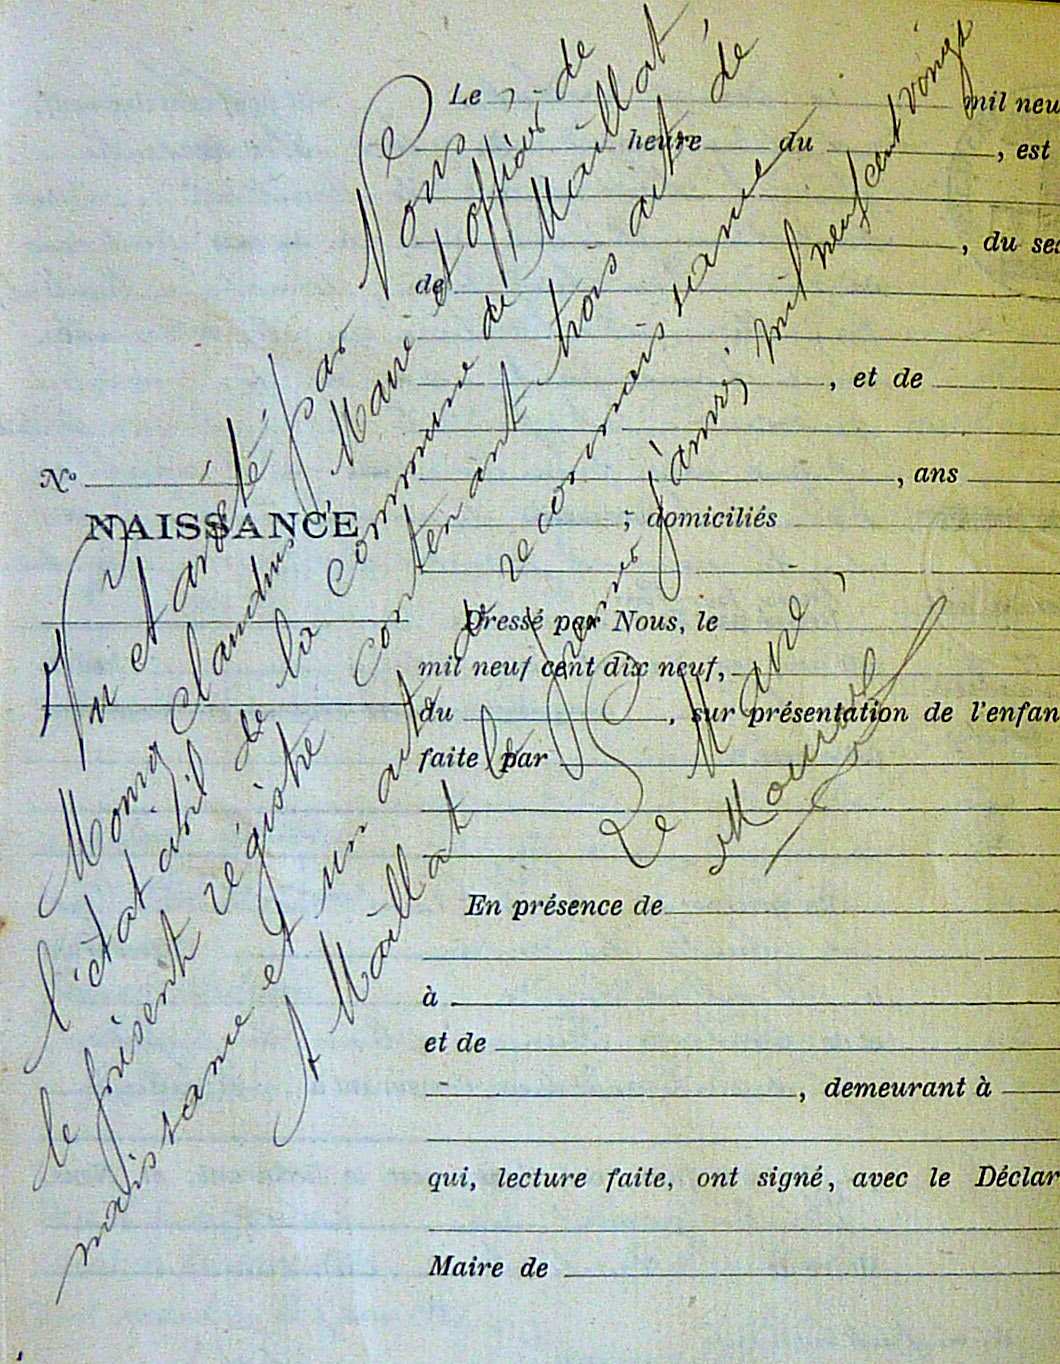 Le mil neu
heure du , est
, du se
de
, et de
, ans
; domiciliés
Dressé par Nous, le
mil neuf cent dix neuf,
du , sur présentation de l'enfan
faite par
En présence de
à
et de
, demeurant à
qui, lecture faite, ont signé, avec le Déclar
Maire de
No
NAISSANCE
Vu et arrêté par Nous
Claudius Maire et officier de
l'état civil de la commune de Maillat
le présent régistre contenant trois acte de
naissance et un acte de reconnaissance
A Maillat le premier janvier mil neuf cent vingt
Le Maire,